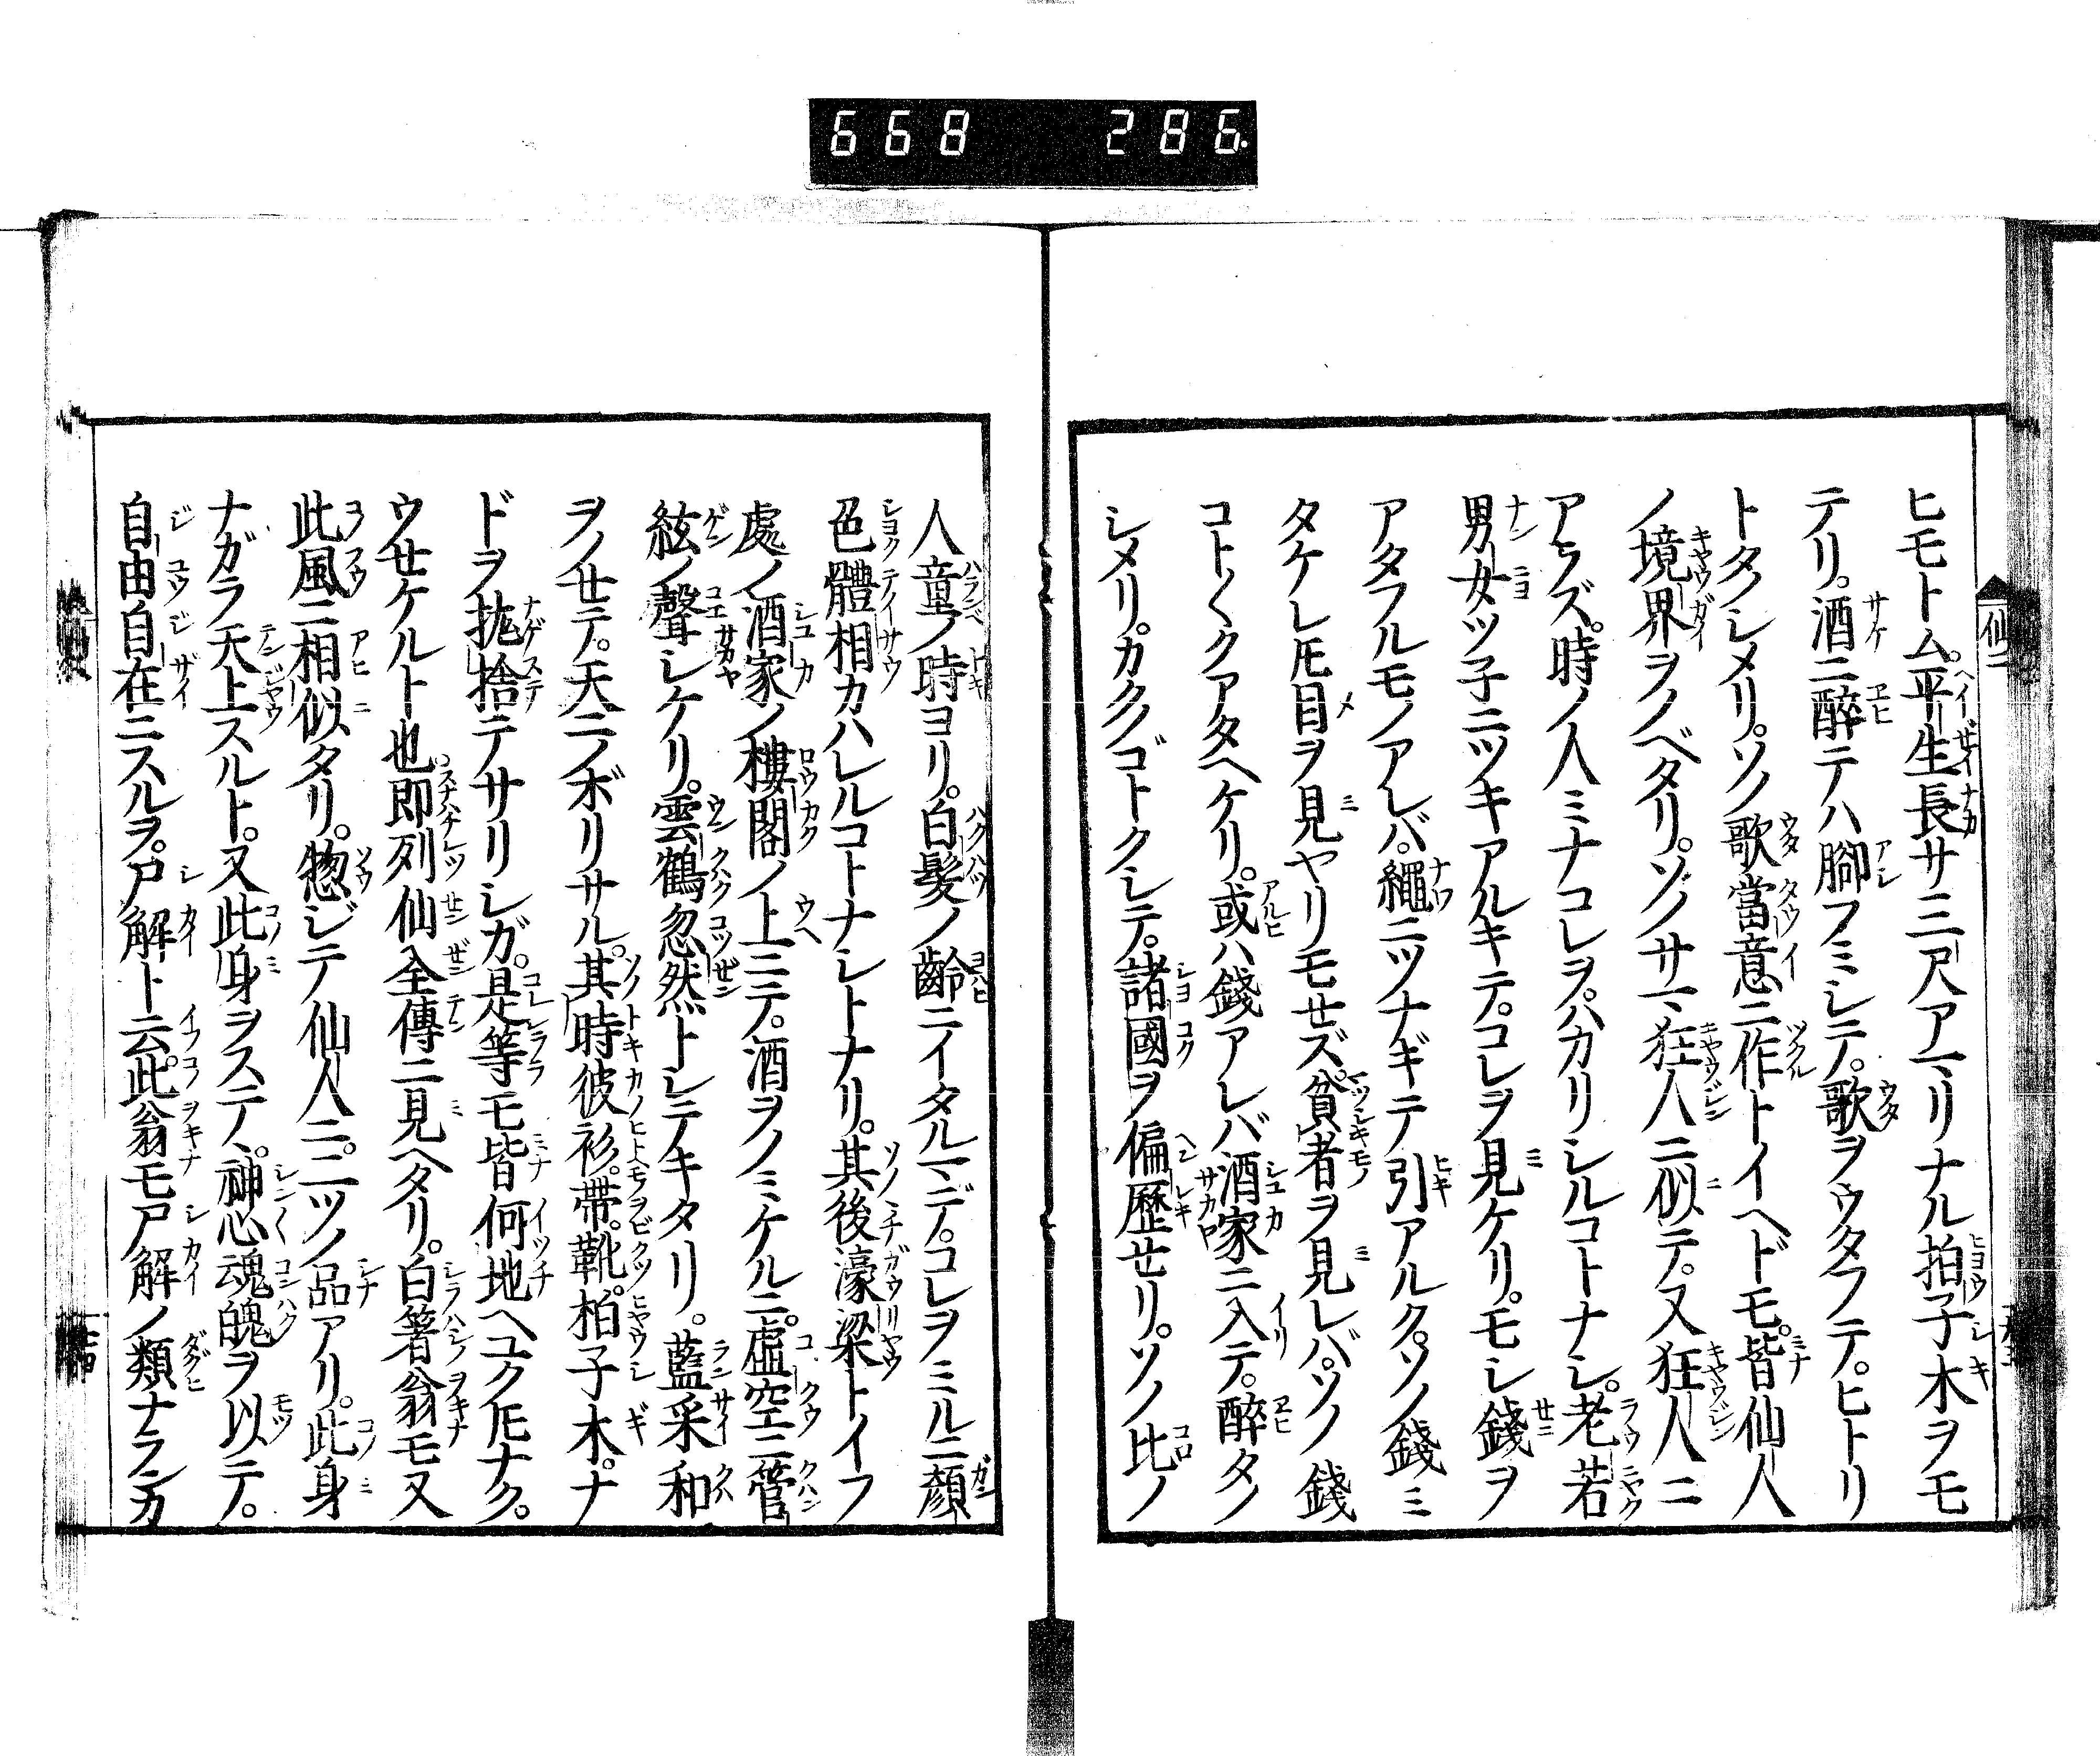 668 286.
仙二
ヒモトム。平生長サ三尺アマリナル拍子木ヲモ
テリ。酒ニ醉テハ脚フミシテ。歌ヲウタフテ。ヒトリ
トタノシメリ。ソノ歌當意ニ作トイヘドモ。皆仙人
ノ境界ヲノベタリ。ソノサマ狂人ニ似テ。又狂人ニ
アラズ。時ノ人ミナコレヲハカリシルコトナシ。老若
男女ツ子ニツキアルキテ。コレヲ見ケリ。モシ錢ヲ
アタフルモノアレバ。繩ニツナギテ引アルク。ソノ錢ミ
タケレ𪜈目ヲ見ヤリモセズ。貧者ヲ見レバ。ソノ錢
コト〱クアタヘケリ。或ハ錢アレバ酒家ニ入テ。醉タノ
シメリ。カクノゴトクシテ。諸國ヲ偏歷セリ。ソノ比ノ
人童ノ時ヨリ。白髮ノ齡ニイタルマデ。コレヲミルニ顏
色體相カハレルコトナシトナリ。其後濠梁トイフ
處ノ酒家ノ樓閣ノ上ニテ。酒ヲノミケルニ。虛空ニ管
絃ノ聲シケリ。雲鶴忽然トシテキタリ。藍采和
ヲノセテ。天ニノボリサル。其時彼衫。帶。靴。柏子木。ナ
ドヲ抛捨テサリシガ。是等モ皆何地ヘユク𪜈ナク。
ウセケルト也。即列仙全傳ニ見ヘタリ。白箸翁モ又
此風ニ相似タリ。惣ジテ仙人ニ。二ツノ品アリ。此身
ナガラ天上スルト。又此身ヲステ。神心魂魄ヲ以テ。
自由自在ニスルヲ。尸解ト云。此翁モ尸解ノ類ナランカ